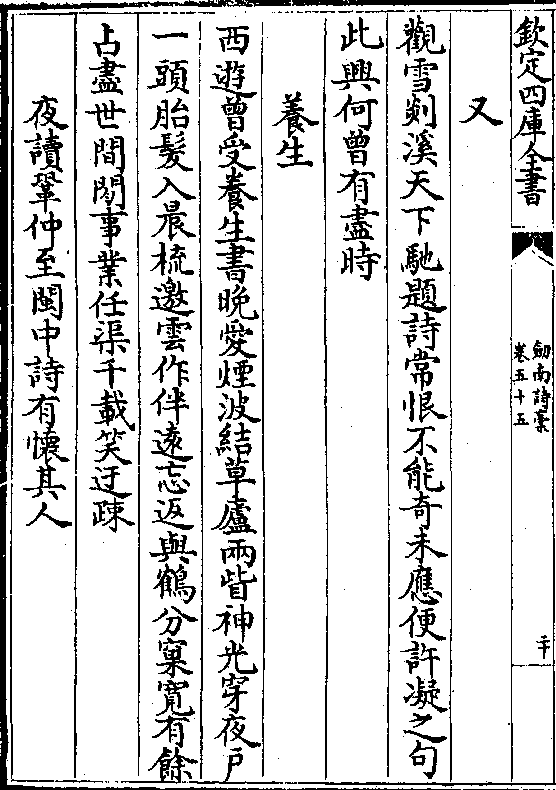 欽定四庫全書
劒南詩槀
卷五十五
二十
又
觀雪剡溪天下馳題詩常恨不能奇未應便許凝之句
此興何曾有盡時
養生
西遊曾受養生書晚愛煙波結草廬兩眥神光穿夜戶
一頭胎髮入晨梳邀雲作伴遠忘返與鶴分窠寛有餘
占盡世間閑事業任渠千載笑迂疎
夜讀鞏仲至閩中詩有懷其人